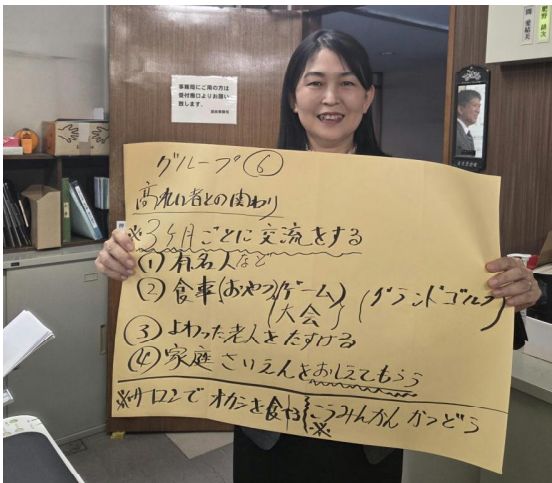 事務局にご用の方は
受付窓口よりお願い
致します。
グループ⑥
高れい者との関わり
※3ヶ月ごとに交流をする
(1) 有名人など
(2) 食事(おやつ)(ゲーム大会) (グランドゴルフ)
(3) よわった老人をたすける
(4) 家庭さいえんをおしえてもらう
※サロンでオカシを食べる{こうみんかんかつどう
※